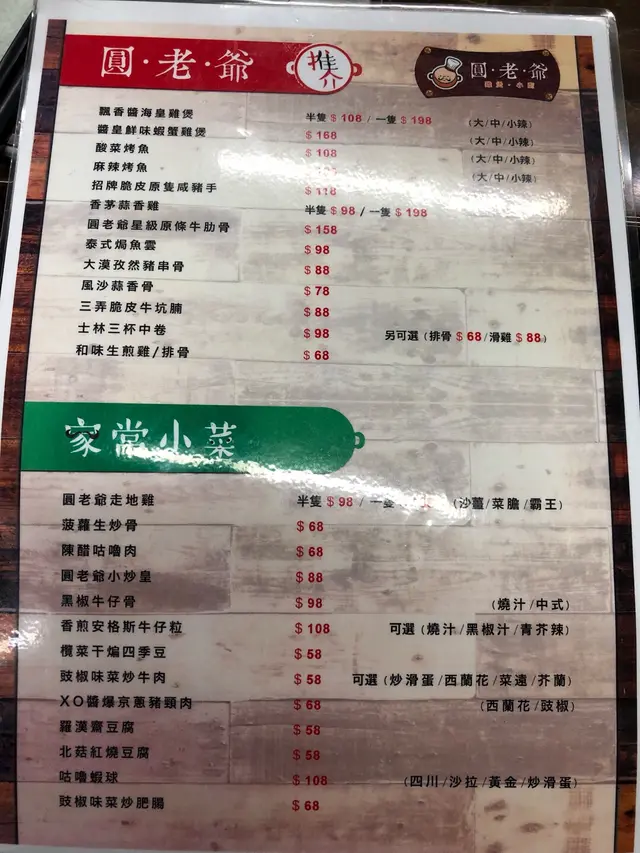 圓·老·爺 推介
圓·老·爺
飄香醬海皇雞煲 半隻 $ 108 / 一隻 $ 198 (大/中/小辣)
醬皇鮮味蝦蟹雞煲 $ 168 (大/中/小辣)
酸菜烤魚 $ 108 (大/中/小辣)
麻辣烤魚 (大/中/小辣)
招牌脆皮原隻咸豬手 $ 118
香茅蒜香雞 半隻 $ 98 / 一隻 $ 198
圓老爺星級原條牛肋骨 $ 158
泰式焗魚雲 $ 98
大漠孜然豬串骨 $ 88
風沙蒜香骨 $ 78
三弄脆皮牛坑腩 $ 88
士林三杯中卷 $ 98 另可選 (排骨 $ 68 / 滑雞 $ 88)
和味生煎雞/排骨 $ 68
家常小菜
圓老爺走地雞 半隻 $ 98 / 一隻 (沙薑/菜膽/霸王)
菠蘿生炒骨 $ 68
陳醋咕嚕肉 $ 68
圓老爺小炒皇 $ 88
黑椒牛仔骨 $ 98 (燒汁/中式)
香煎安格斯牛仔粒 $ 108 可選 (燒汁/黑椒汁/青芥辣)
欖菜干煸四季豆 $ 58
豉椒味菜炒牛肉 $ 58 可選 (炒滑蛋/西蘭花/菜遠/芥蘭)
XO醬爆京蔥豬頸肉 $ 68 (西蘭花/豉椒)
羅漢齋豆腐 $ 58
北菇紅燒豆腐 $ 58
咕嚕蝦球 $ 108 (四川/沙拉/黃金/炒滑蛋)
豉椒味菜炒肥腸 $ 68